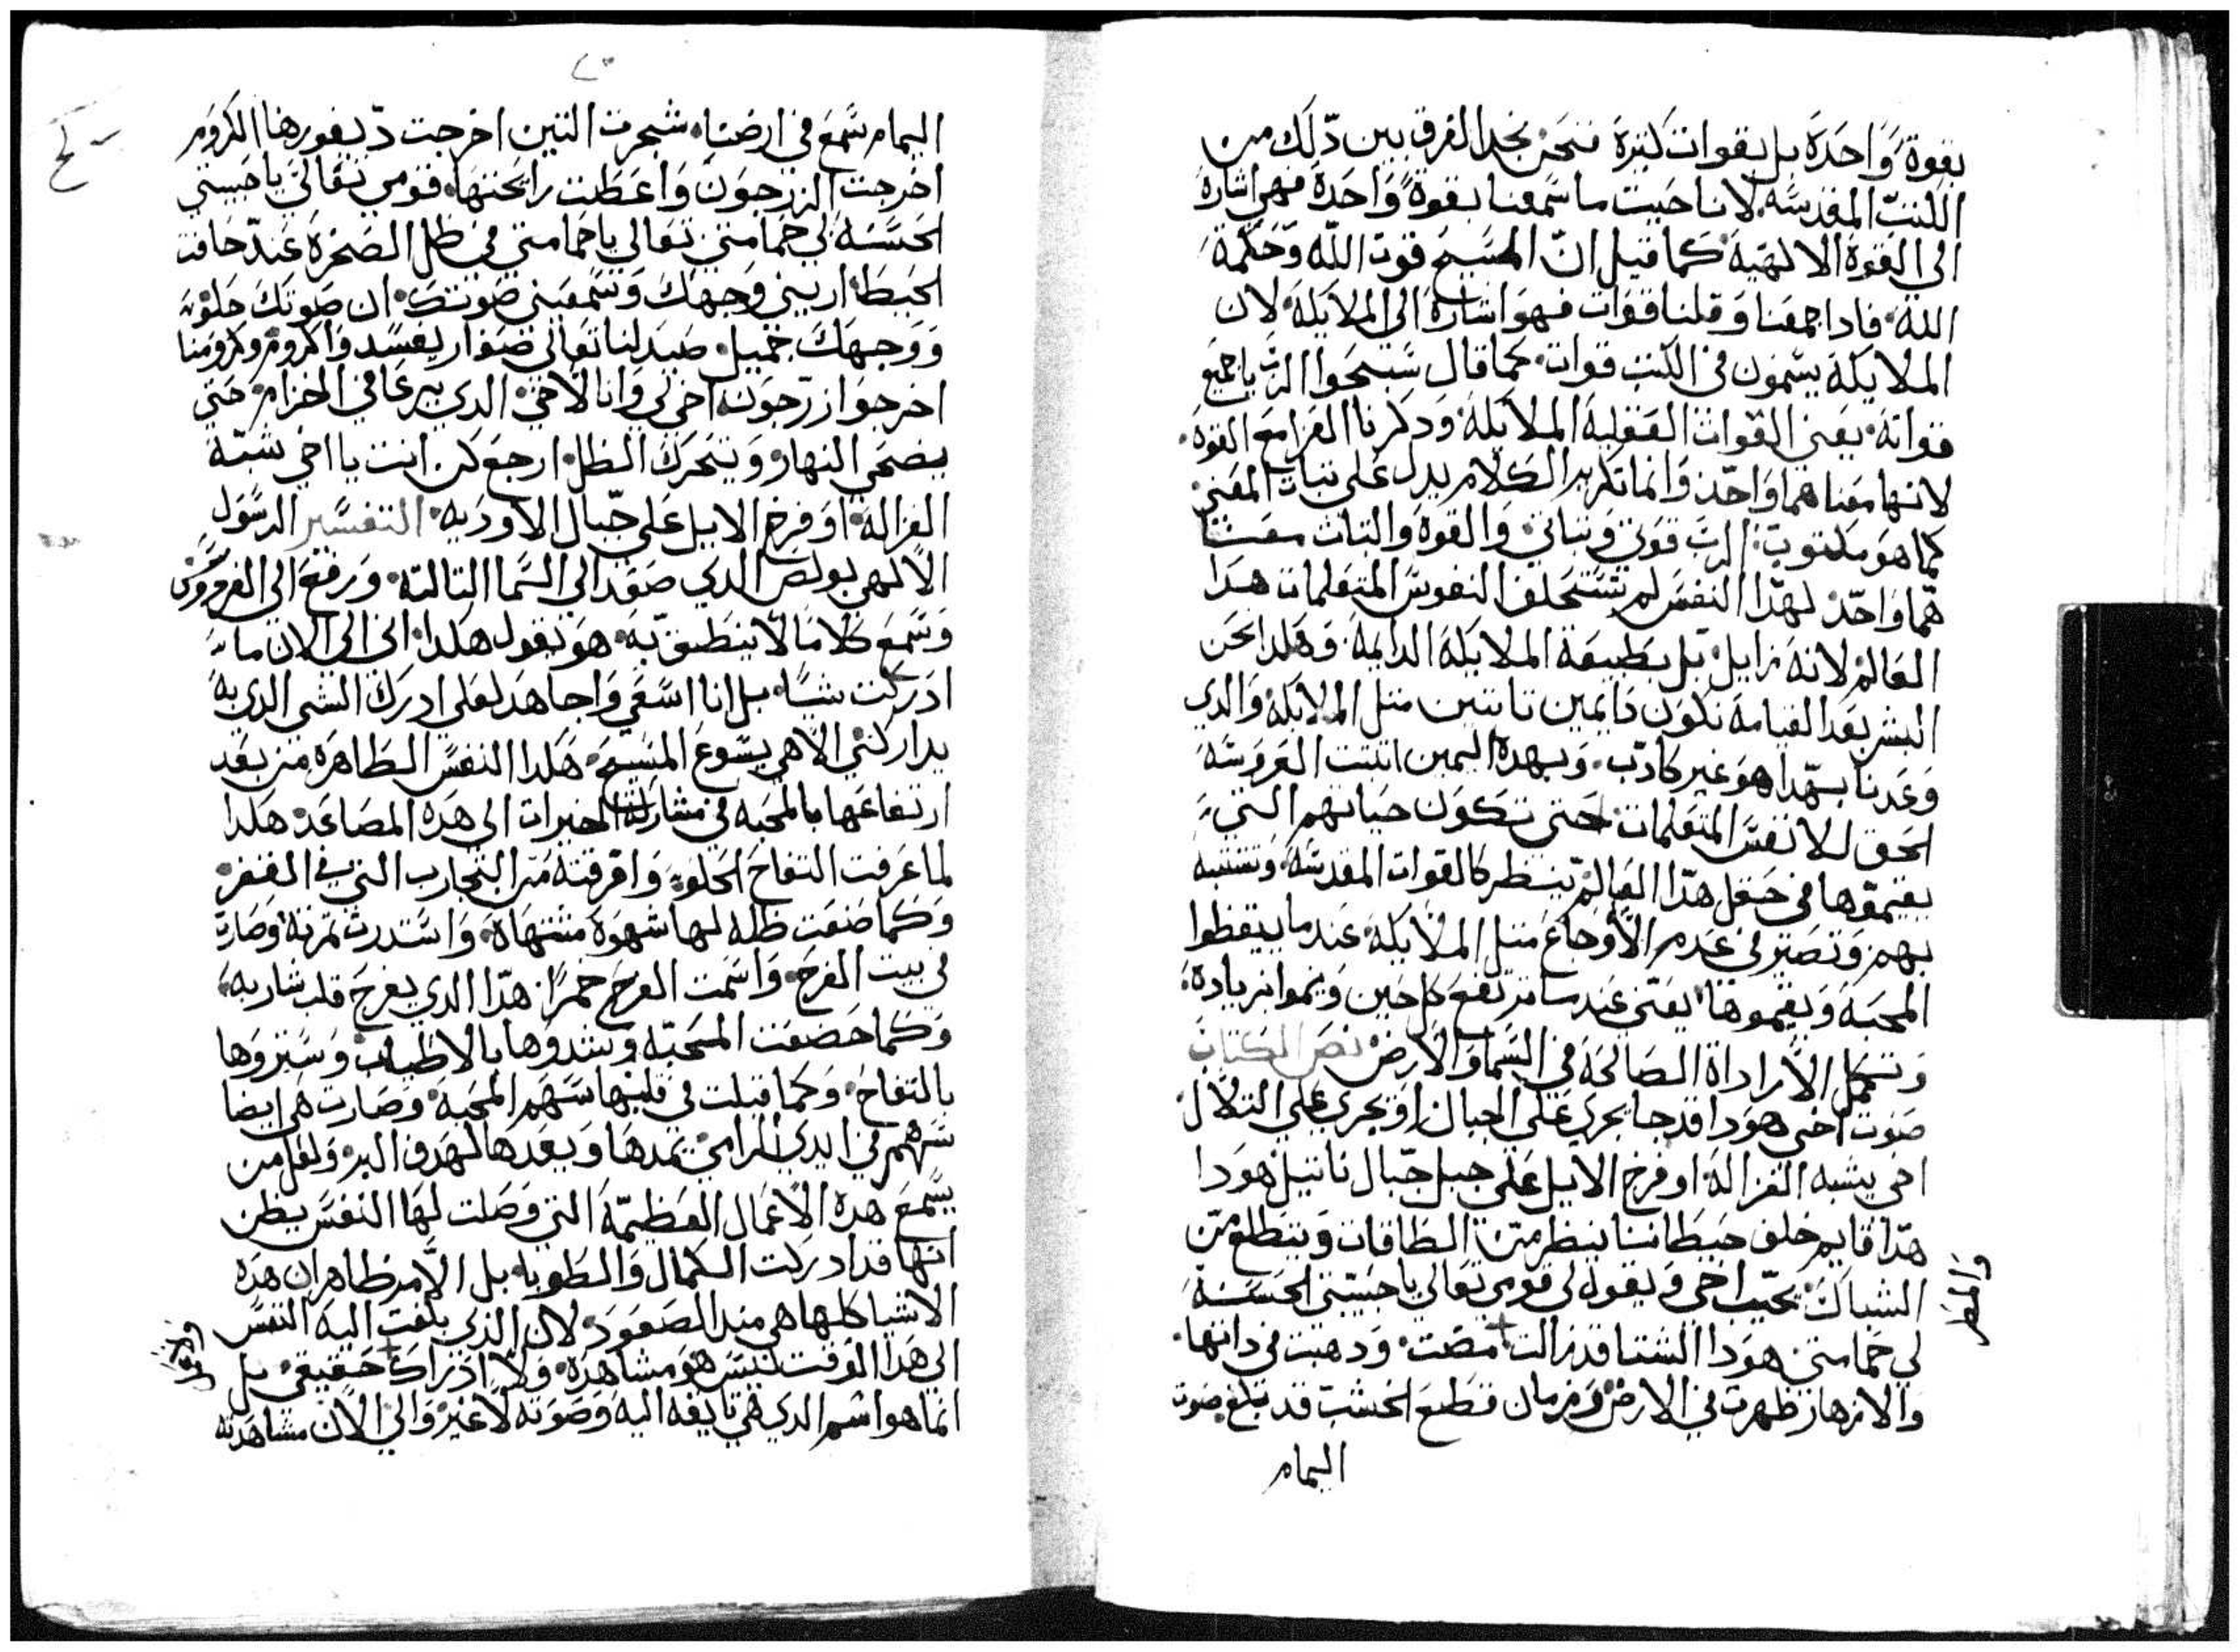 بقوة وَاحدَة بل بقوات كتيرة فنحن نجد الفرق بين دلك من
الكتب المقدسَه. لانا حيت ما سَمعنا بقوة وَاحدة فهي اشارة
الى القوة الالهيه كما قيل انّ المسَيح قوت اللّه وَحكمة
اللّه. فادا جمعنا وَقلنا قوات فهوَ اشارة الى الملايكة. لان
الملايكة يسَمون في الكتب قوات. كما قال سَبحوا الرب يا جميع
قواته. يعني القوات العقلية الملايكة. وَدكرنا العزا مع القوة.
لانها معناهما وَاحد وَانما تكرير الكلام يدل على تبات المعني
كما هوَ مكتوب الربّ قوتي وتباتي. وَالقوة وَالتبات معنا
هما وَاحد. لهدا النفسَ لم تستحلف النفوسَ المتعلمات هدا
العَالم لانه زايل. بل بطبيعة الملايكة الدايمة. وَهكدا نحن
البشر بعد القيامة نكون دايمين تابتين متل الملايكة. وَالدي
وَعدنا بهدا هوَ غير كادب. وَبهدة اليمين اتبتت العروسَة
الحق للانفسَ المتعلمات. حتى تكون حياتهم التي
يقيموها في حقل هدا العَالم تنظر كالقوات المقدسَة. وَتتشبه
بهم وَتصير في عدم الاوجاع متل الملايكة. عند ما ييقظوا
المحبة وَيقيموها. يعني عند ما ترتفع كل حين وَينموا بزيادة.
وَتكمل الاراداة الصالحة في السَما وَالارض نص الكتاب
صَوت اخي هوَدا قد جا يجري على الجبال اوَ يجري علي التلال.
اخي يشبه الغزالة. او فرخ الايل على جبل جبال تاتيل هوَدا
هدا قايم خلف حيطاننا ينظر من الطاقات وَيتطلع من
الشباك. يجيب اخي وَيقول لي قومى تعالي يا حبيبتي الحسَنة
لي حمامتي هوَدا الشتا قد زالت مضت. وَدهبت في داتها.
وَالمطر
وَالازهار ظهرت في الارض وَزمان قطع الخشب قد بلغ صوت
اليمام
اليمام سَمع في ارضنا. شجرت التين اخرجت فقورها الكروَم
اخرجت الزرجوَن وَاعطت رايحتها. قومى تعَالي يا حبيبتي
الحسَنة لي حمامتي تعالي يا حمامتي في ظل الصخرة عند حافت
الحيط. اريني وَجهك وَسمعيني صَوتك. ان صَوتك حلوَ
وَوَجهك جميل. صَيد لنا تعَالي صغار يفسَد وَا كروم وكرومنا
اخرجوَا زرجوَن. اخي لي وَانا لاخي. الدي يرعا في الخزام. حتي
يضحى النهار. وَيتحرك الظل. ارجع كن انت يا اخي شبه
الغزالة. اوَ فرخ الايل علي جبال الاودَيه. التفسَير الرسَول
الالهي بولص الدي صَعد الي السَما التالته. وَرفع الى الفردوسَ
وَسَمع كلاما لا ينطق به. هوَ يقول هكدا. اني الي الان ما
ادركت شيًا. بل انا اسَعي وَاجاهد لعلي ادرك الشي الدي به
يداركني الاهي يسَوع المسَيح. هكدا النفسَ الطاهرة من بعد
ارتفاعها بالمحبه في مشاركة الخيرات الى هده المصاعد. هكدا
لما عرفت التفاح الحلو وَافرقته من التجارب التي في القفر.
وَكما صَنعت ظله لها شهوَة مشتهاة. وَاسَتدرت تمرته وَصَارت
في بيت الفرح. وَاسَمت الفرح خمرا. هدا الدي يفرح قلب شاربه.
وَكما خضعت المحبّه وَسندوَها بالاطياب. وَسَتروَها
بالتفاح. وَكما قبلت في قلبها سَهم المحبة. وَصَارت هي ايضا
سَهم في ايدي الرامي يمدها وَيعدها لهدف البر. وَلعل من
يسَمع هده الاعمال العظيمة التي وَصَلت لها النفسَ يظن
انها قد ادركت الكمال وَالطوبا. بل الامر ظاهر ان هده
الاشيا كلها هي مبدا الصعوَد. لان الدي بلغت اليه النفسَ
الى هدا الوقت ليسَ هوَ مشاهدة. وَلا ادراك حقيقي. بل
انما هوا اسَم الدي هي تايقه اليه وَصَوته لا غير وَالي الان مشاهدته